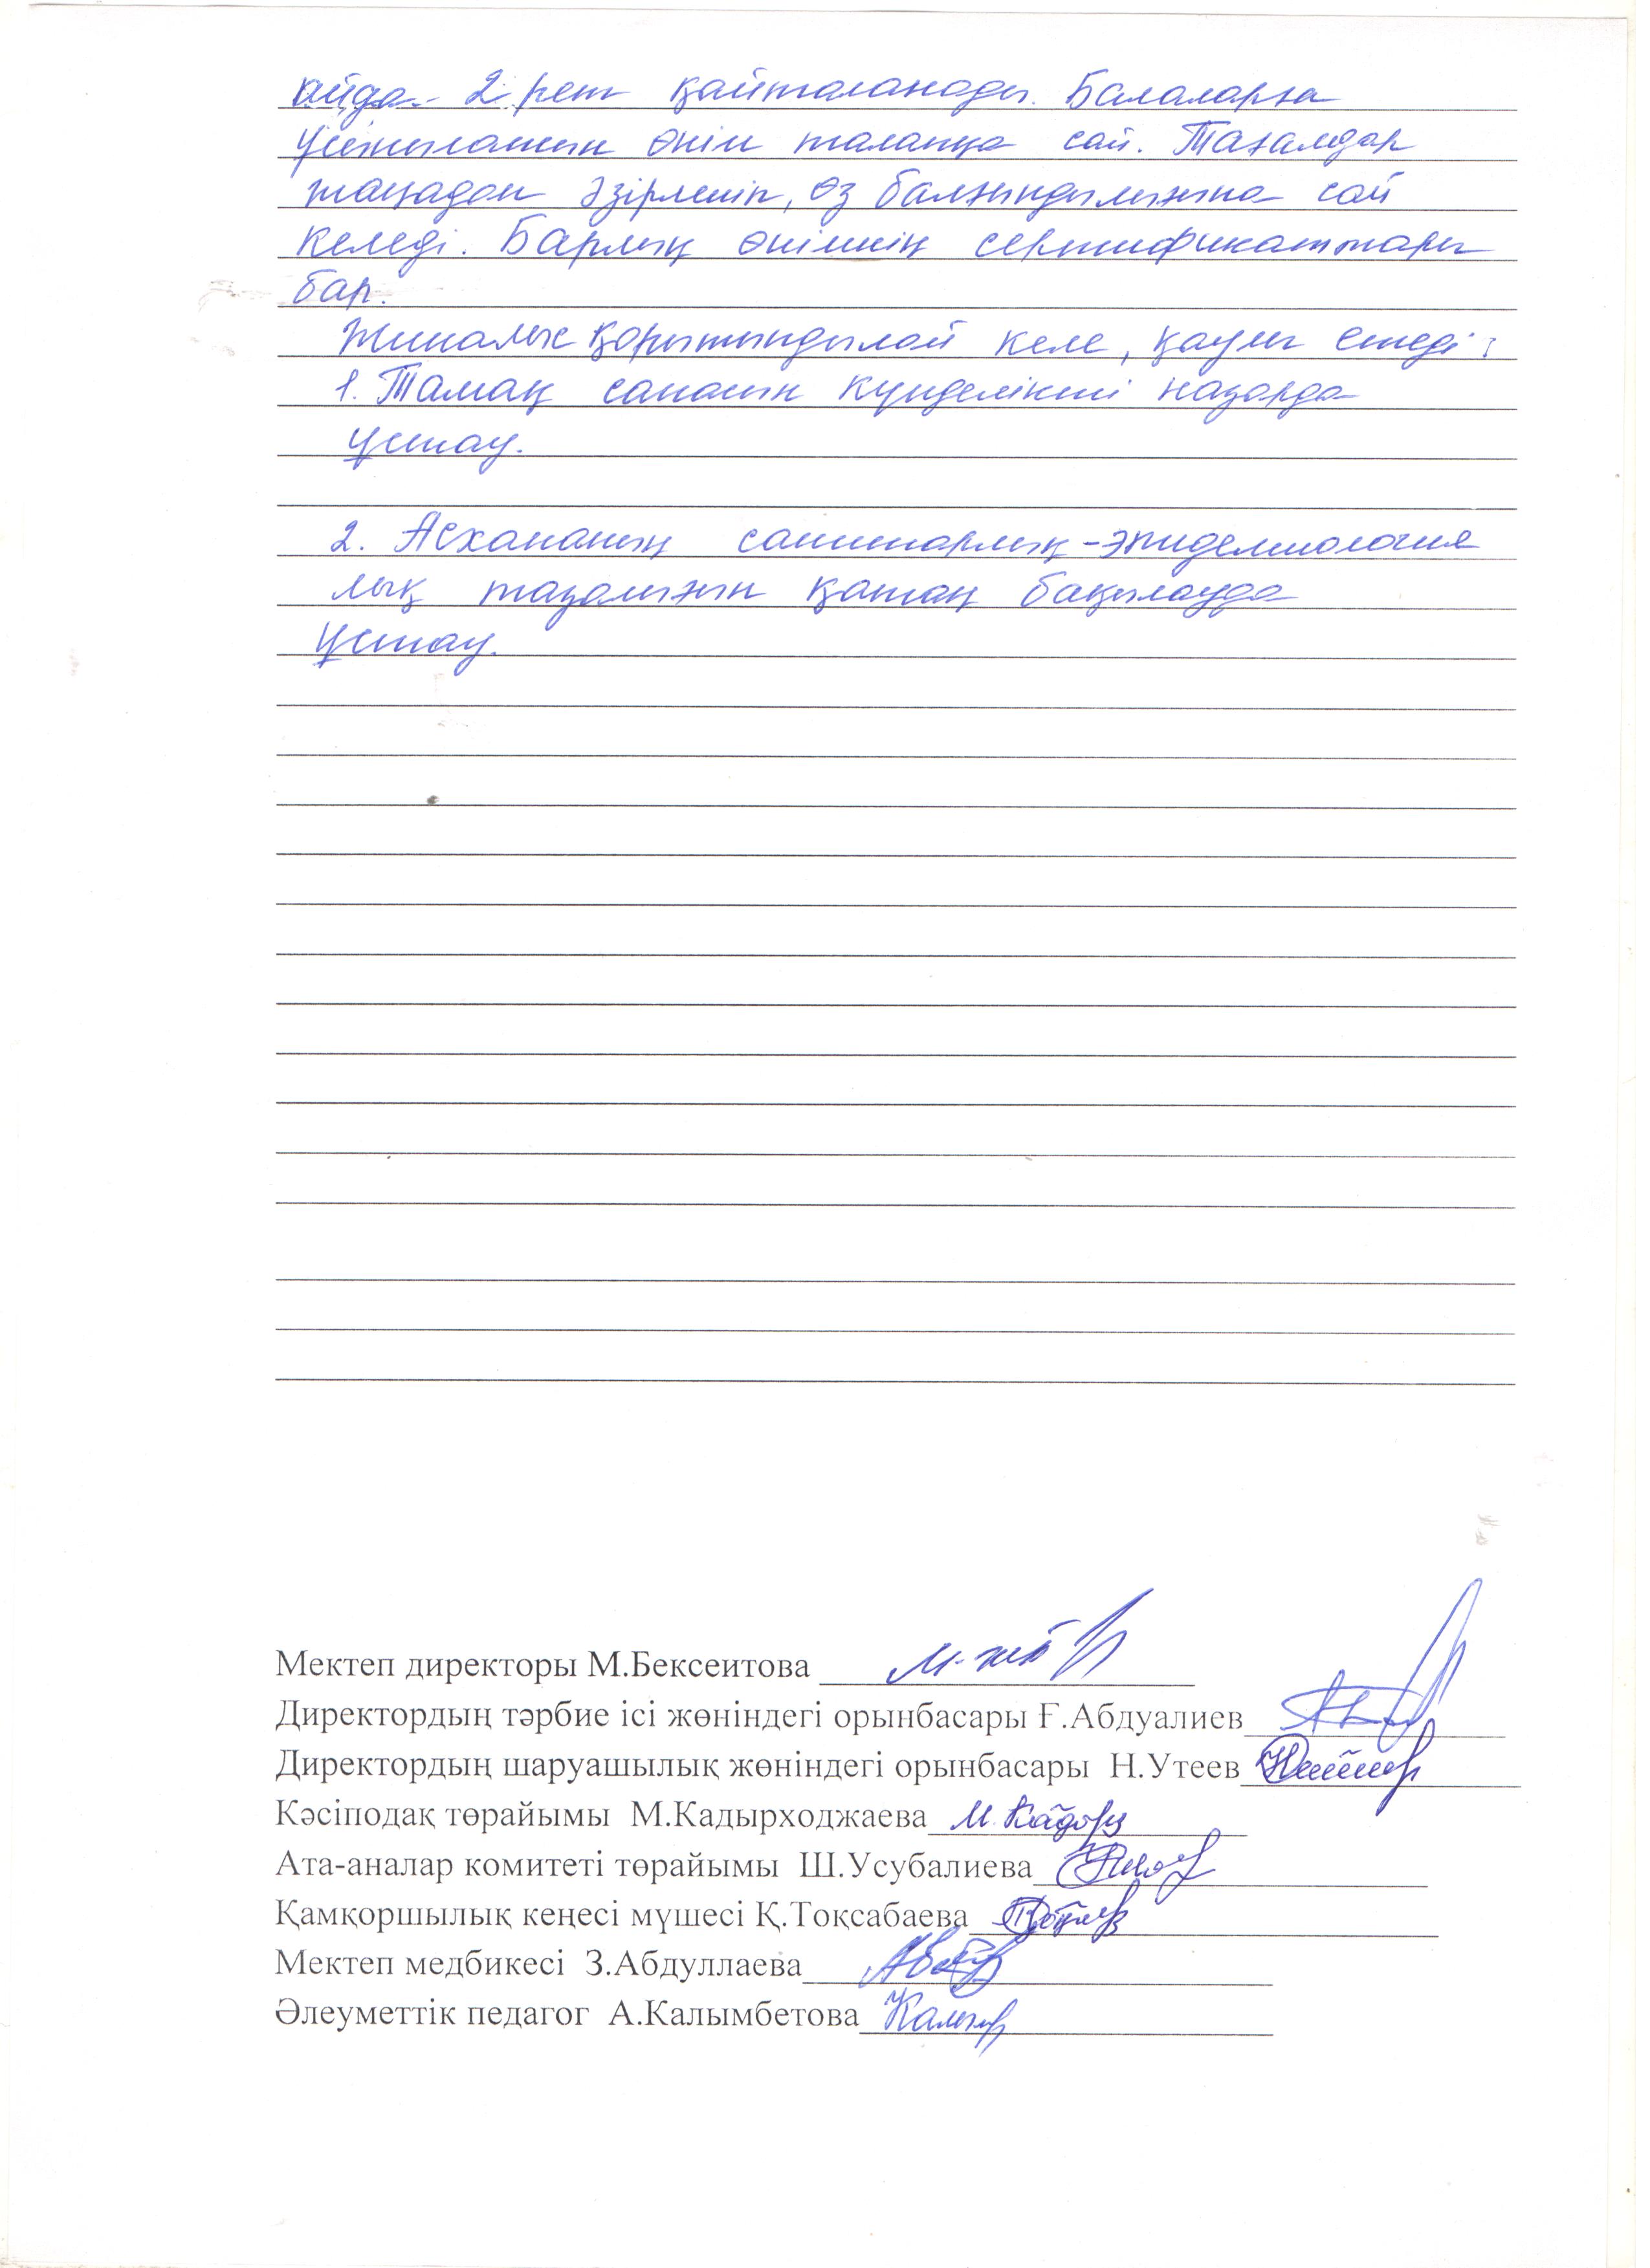 айда 2 рет қайталанады. Балаларға
ұсынылатын өнім талапқа сай. Тағамдар
жаңадан әзірленіп, өз балғындылығына сай
келеді. Барлық өнімнің сертификаттары
бар.
Жиналыс қорытындылай келе, қаулы етеді:
1. Тамақ сапасын күнделікті назарда
ұстау.
2. Асхананың санитарлық-эпидемиология
лық тазалығын қатаң бақылауда
ұстау.
Мектеп директоры М.Бексеитова
Директордың тәрбие ісі жөніндегі орынбасары Ғ.Абдуалиев
Директордың шаруашылық жөніндегі орынбасары Н.Утеев
Кәсіподақ төрайымы М.Кадырходжаева
Ата-аналар комитеті төрайымы Ш.Усубалиева
Қамқоршылық кеңесі мүшесі Қ.Тоқсабаева
Мектеп медбикесі З.Абдуллаева
Әлеуметтік педагог А.Калымбетова